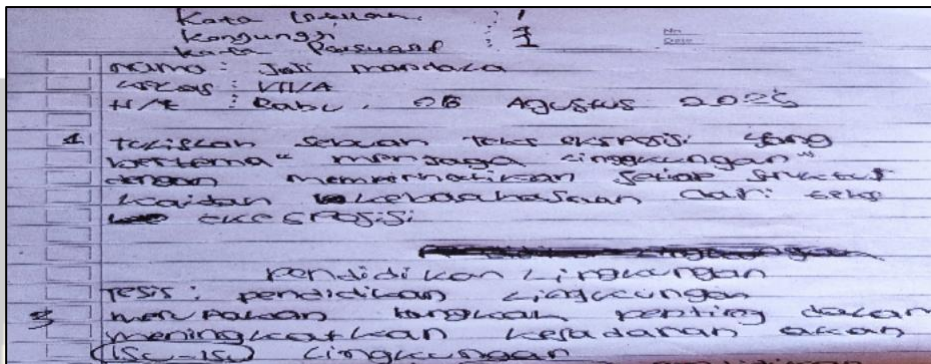 Kata : 1
Konjungsi : 1
Kata Persuasif : 1
No
Date
nama : Jati mandaca
Kelas : VII/A
H/t : Rabu, 06 Agustus 2025
1 tuliskan sebuah teks eksposisi yang
bertema "menjaga lingkungan"
dengan memperhatikan setiap struktur
kaidan kebahasaan dari teks
eksposisi
pendidikan Lingkungan
Tesis : pendidikan Lingkungan
3 merupakan langkah penting dalam
meningkatkan kesadaran akan
isu-isu Lingkungan